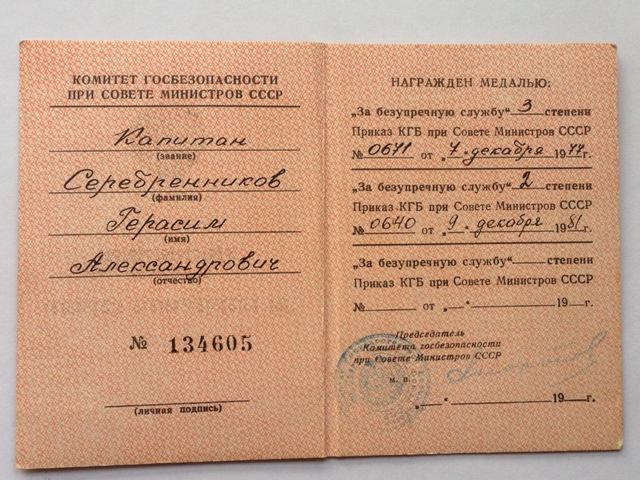 КОМИТЕТ ГОСБЕЗОПАСНОСТИ
ПРИ СОВЕТЕ МИНИСТРОВ СССР
Капитан
(звание)
Серебренников
(фамилия)
Герасим
(имя)
Александрович
(отчество)
№ 134605
(личная подпись)
НАГРАЖДЕН МЕДАЛЬЮ:
„За безупречную службу“ 3 степени
Приказ КГБ при Совете Министров СССР
№ 0671 от „7“ декабря 1977г.
„За безупречную службу“ 2 степени
Приказ КГБ при Совете Министров СССР
№ 0640 от „9“ декабря 1981г.
„За безупречную службу“ степени
Приказ КГБ при Совете Министров СССР
№ от „ “ 19 г.
Председатель
Комитета госбезопасности
при Совете Министров СССР
м. п.
„ “ 19 г.